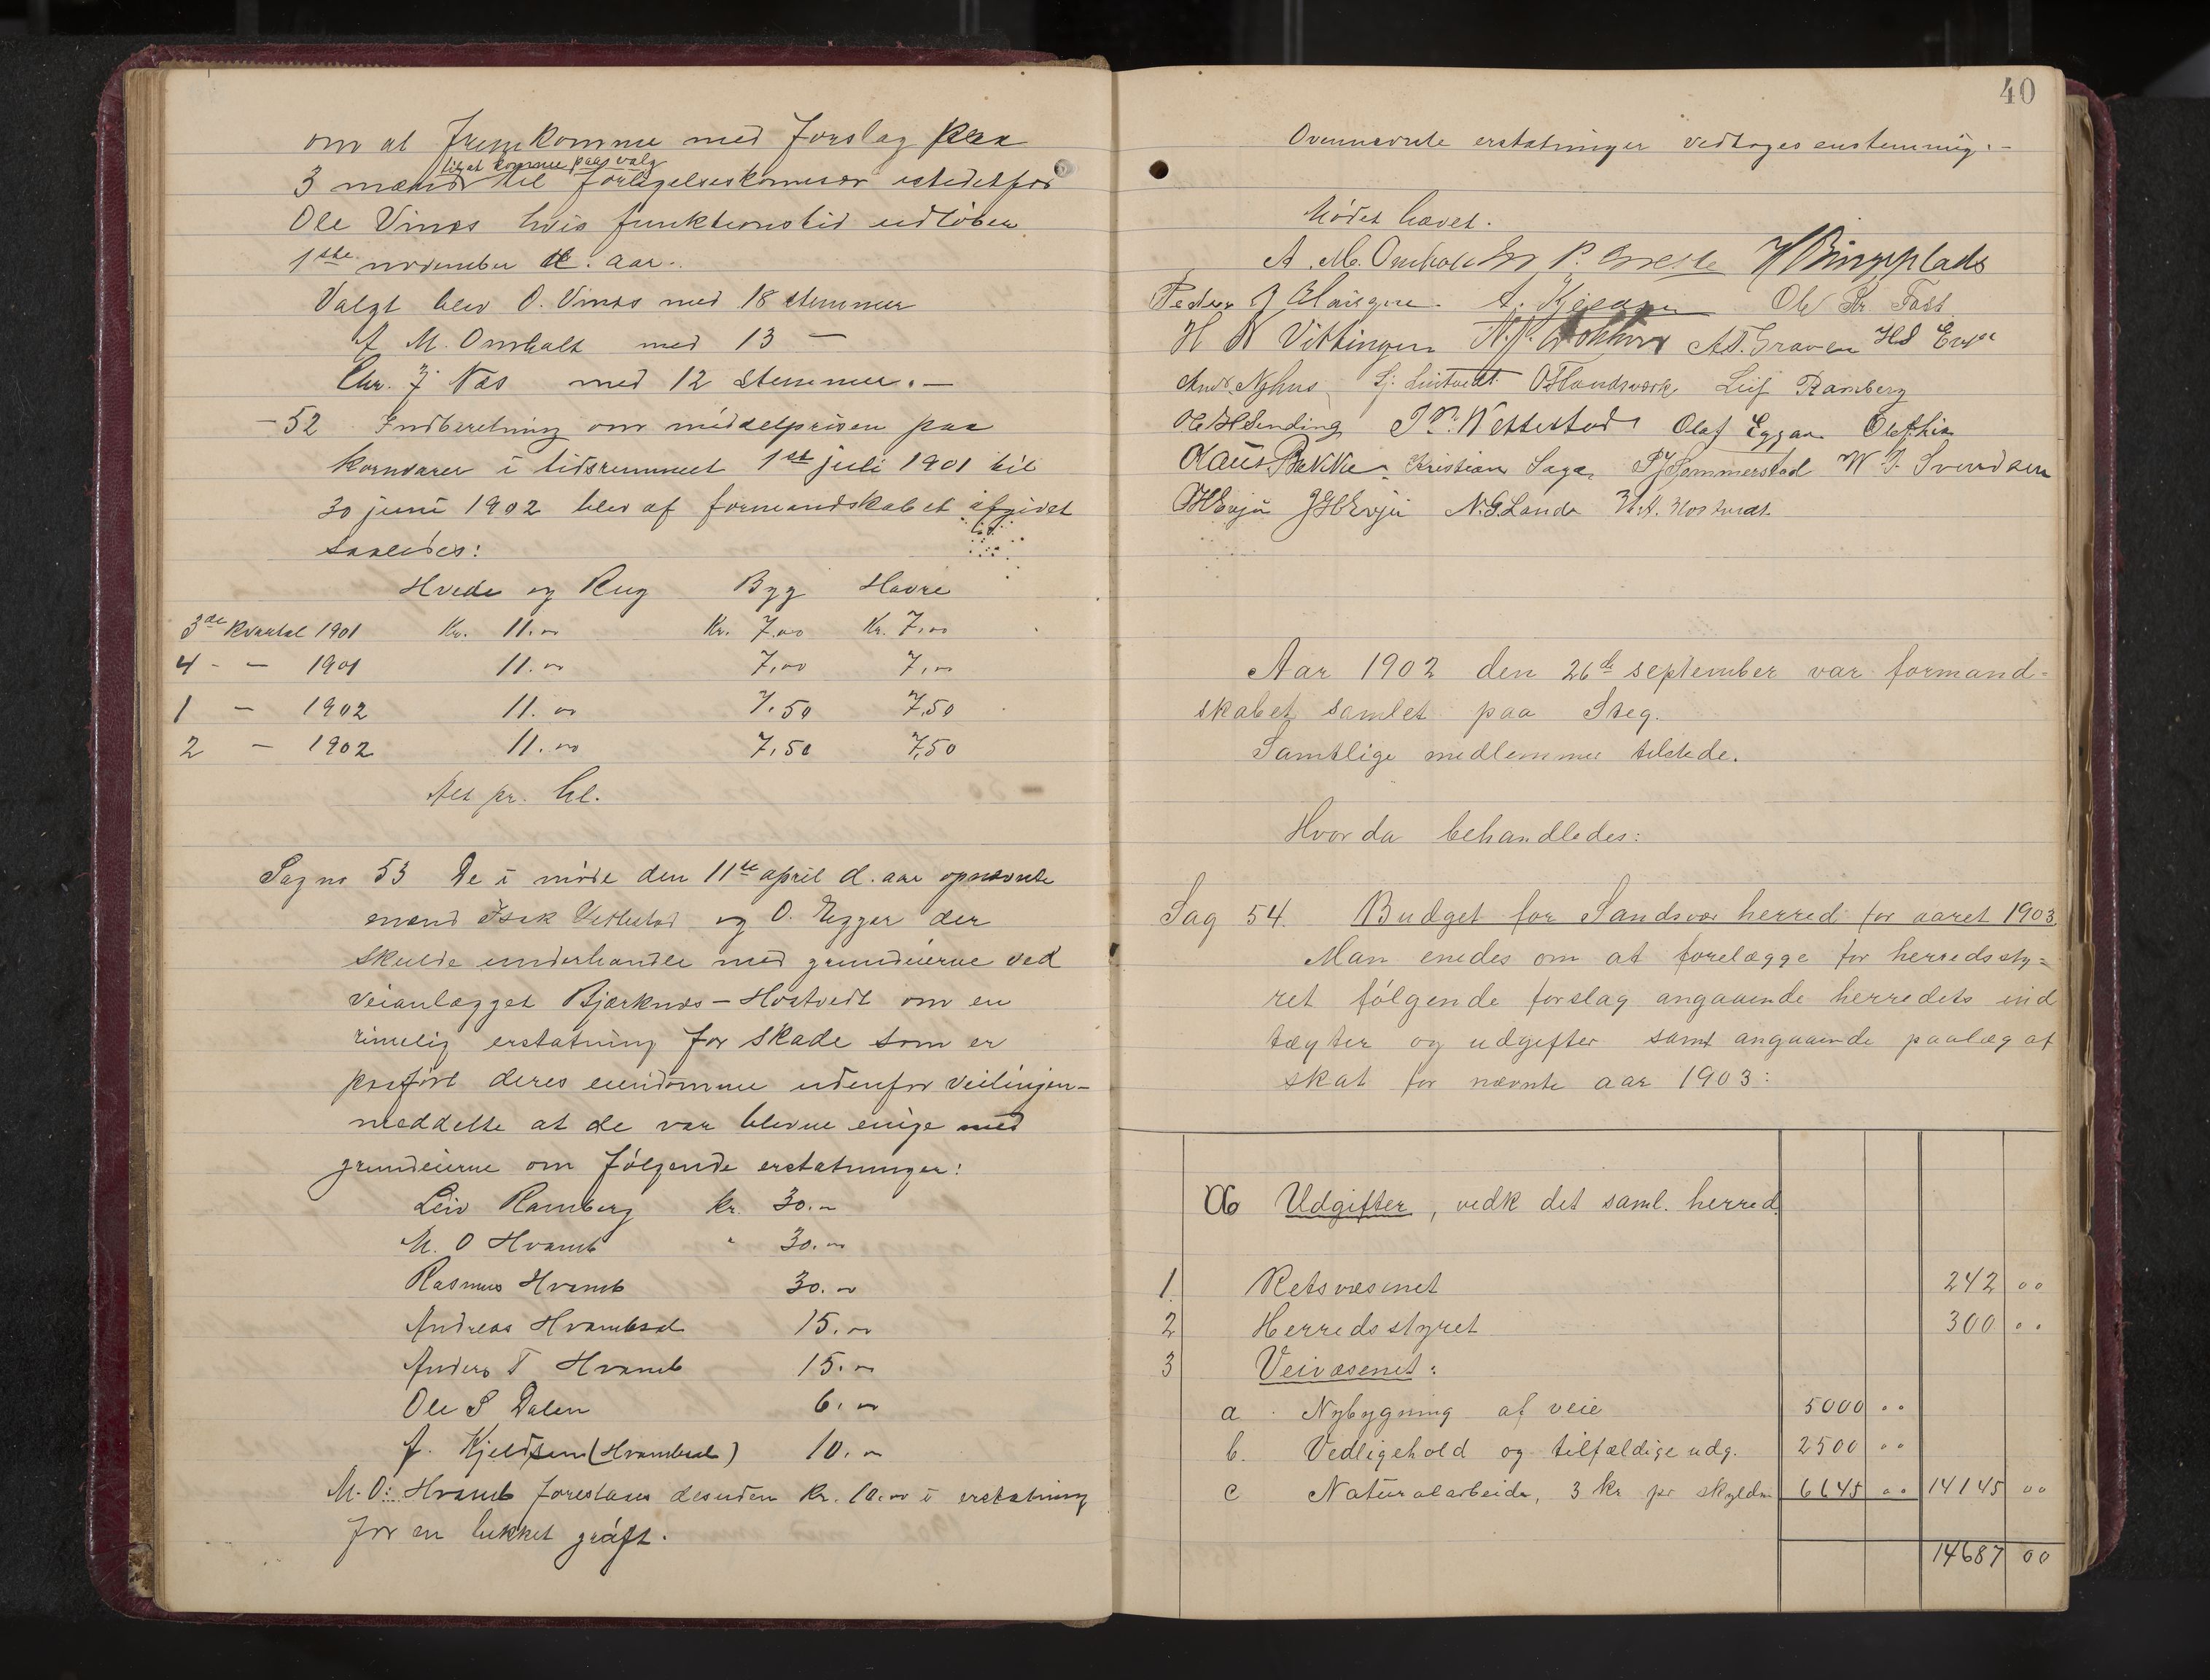 om at fremkomme med forslag paa
til at komme paa valg
3 mænd til forligelseskomisær istedetfor
Ole Vinæs hvis funktionstid udløber
1ste november d. aar.
Valgt blev O. Vinæs med 18 stemmer
A M. Omholt med 13 —
Chr. J Næs med 12 stemmer. —
- 52 Indberetning om middelprisen paa
kornvarer i tidsrummet 1st juli 1901 til
30 juni 1902 blev af formandskabet afgivet
saaledes:
Hvede og Rug Byg Havre
3de kvartal 1901 Kr. 11.00 Kr. 7.00 Kr. 7,00
4 - — 1901 11.00 7,00 7,00
1 — 1902 11.00 7.50 7,50
2 — 1902 11.00 7,50 7,50
Alt pr. hl.
Sag no 53 De i møde den 11te april d. aar opnævnte
mænd Isak Vettestad og O. Eggar der
skulde underhandle med grundeierne ved
veianlægget Bjærknæs - Hostvedt om en
rimelig erstatning for skade som er
paaført deres eiendomme udenfor veilinjen -
meddelte at de var blevne enige med
grundeierne om følgende erstatninger:
Leiv Ramberg kr. 30.00
M. O Hvamb " 30.00
Rasmus Hvamb 30.00
Andreas Hvambsal 15.00
Anders T Hvamb 15.00
Ole S Dalen 6.00
A. Kjeldsen (Hvambsal) 10.00
M. O. Hvamb foreslaaes desuden kr. 10.00 i erstatning
for en lukket grøft.
40
Ovennævnte erstatninger vedtoges enstemmig. —
Mødet hævet.
A. M. Omholt
Peder J Ole Kr. Fast
H N Vittingen A.T. Graven
Andr. Nyhus Leif Ramberg
Ole H Sending Wettestad Olaf Eggar
Klaus Bakke Kristian Saga W. J. Svendsen
O H Evju J H Evju N. G. Lande
Aar 1902 den 26de september var formand=
skabet samlet paa Steg.
Samtlige medlemmer tilstede.
Hvor da behandledes:
Sag 54. Budget for Sandsvær herred for aaret 1903
Man enedes om at forelægge for herredssty=
ret følgende forslag angaaende herredets ind
tægter og udgifter samt angaaende paalæg af
skat for nævnte aar 1903:
Udgifter, vedk det saml. herred.
1. Retsvæsenet 242 00
2 Herredsstyret 300 00
3 Veivæsenet:
a. Nybygning af veie 5000 00
b. Vedligehold og tilfældige udg. 2500 00
c Naturalarbeide, 3 kr pr skyldm 6645 00 14145 00
14687 00